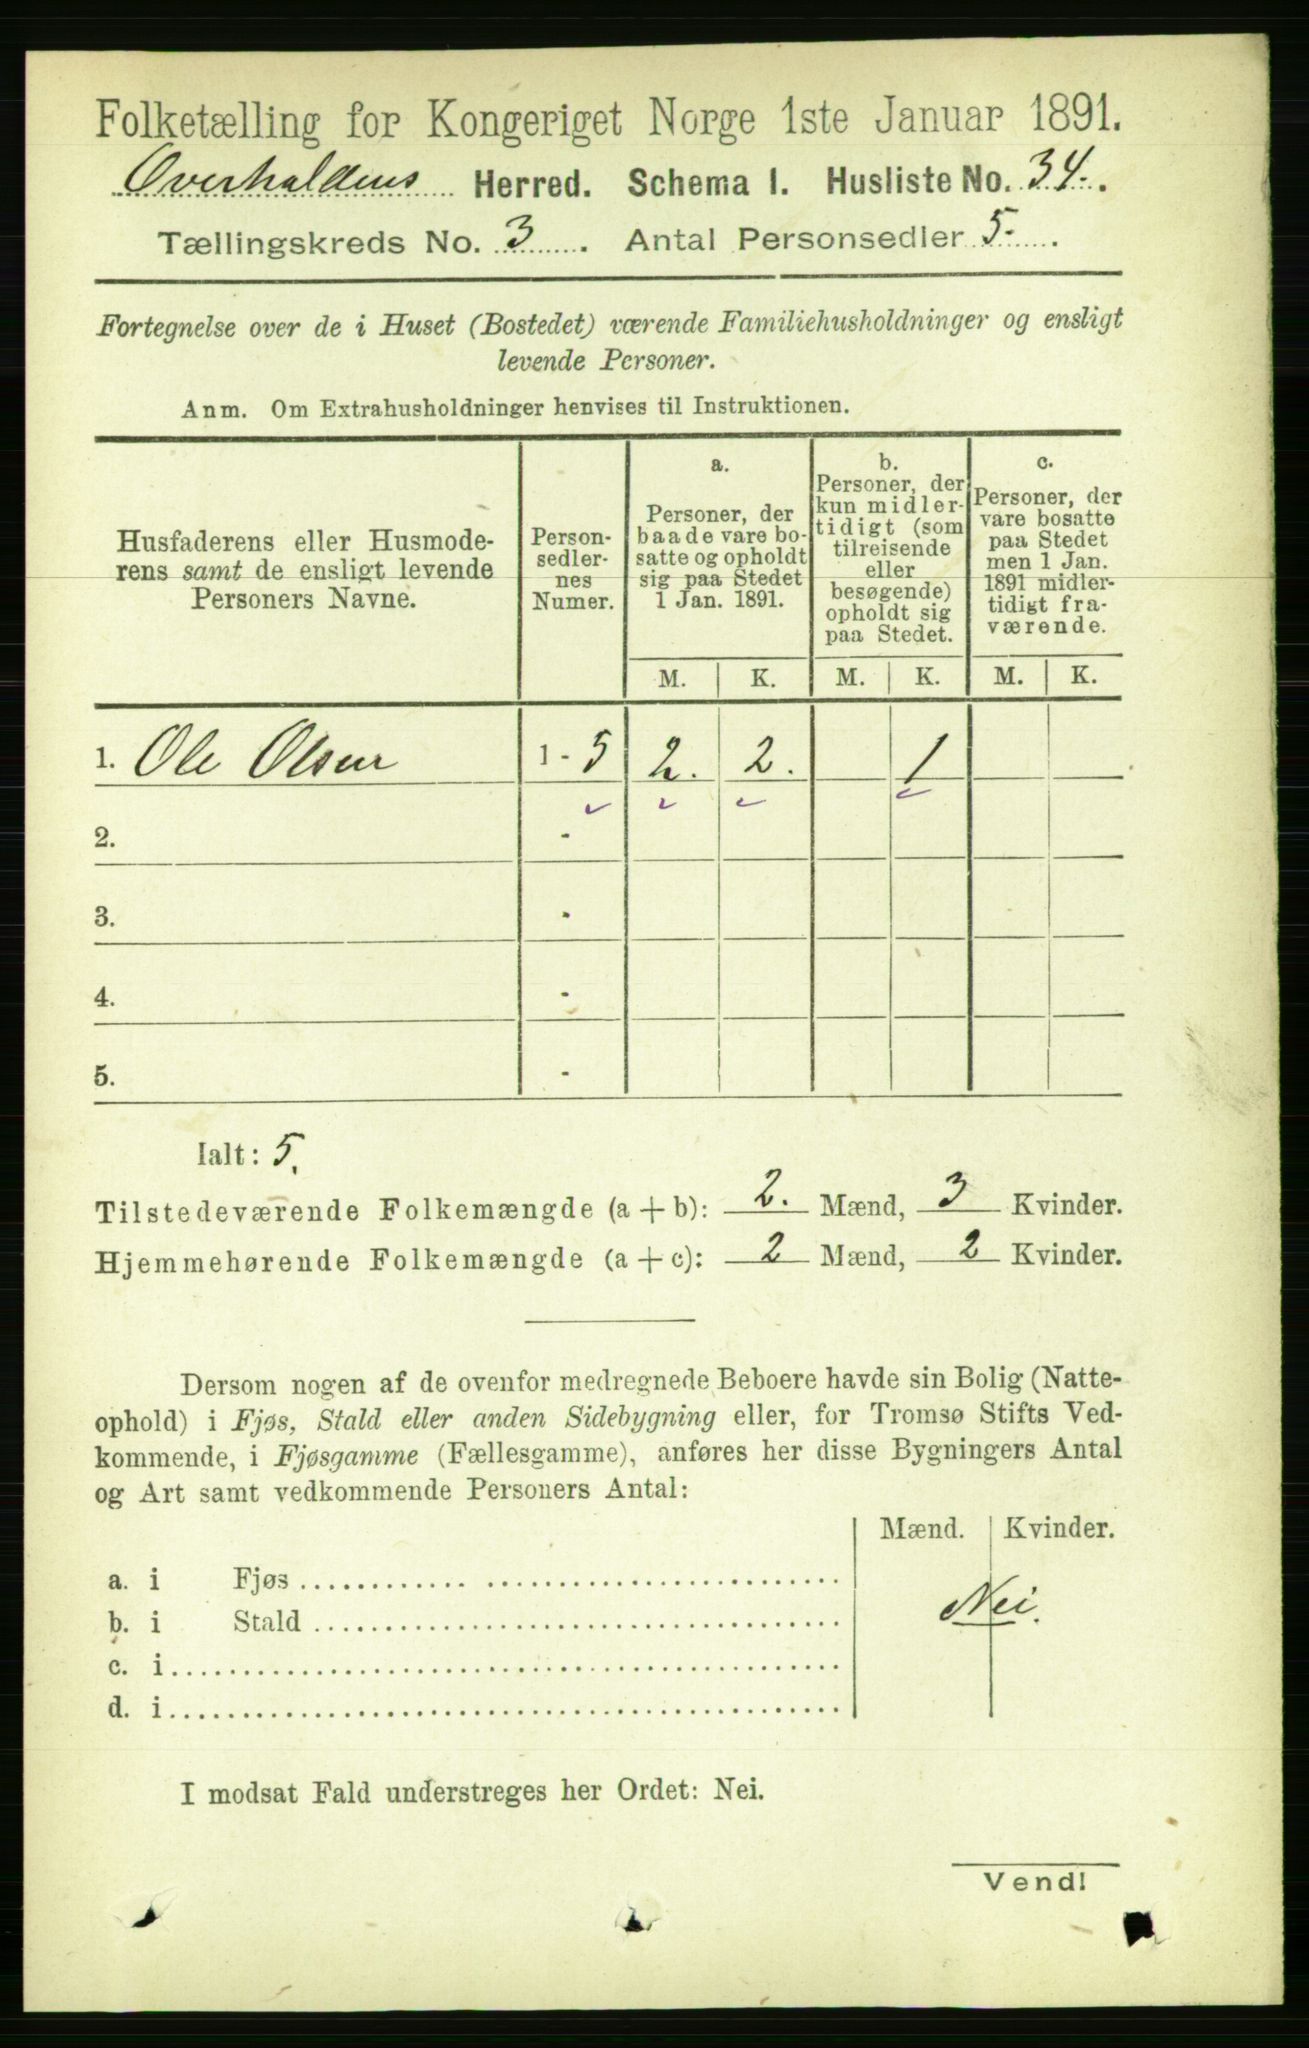 Folketælling for Kongeriget Norge 1ste Januar 1891.
Overhaldens Herred. Schema I. Husliste No. 34.
Tællingskreds No. 3. Antal Personsedler 5.
Fortegnelse over de i Huset (Bostedet) værende Familiehusholdninger og ensligt
levende Personer.
Anm. Om Extrahusholdninger henvises til Instruktionen.
Husfaderens eller Husmode-
rens samt de ensligt levende
Personers Navne.
Person-
sedler-
nes
Numer.
a.
Personer, der
baade vare bo-
satte og opholdt
sig paa Stedet
1 Jan. 1891.
b.
Personer, der
kun midler-
tidigt (som
tilreisende
eller
besøgende)
opholdt sig
paa Stedet.
c.
Personer, der
vare bosatte
paa Stedet
men 1 Jan.
1891 midler-
tidigt fra-
værende.
M. K. M. K. M. K.
1. Ole Olsen 1 - 5 2. 2. 1
2. -
3. -
4. -
5. -
Ialt: 5.
Tilstedeværende Folkemængde (a + b): 2. Mænd, 3 Kvinder.
Hjemmehørende Folkemængde (a + c): 2 Mænd, 2 Kvinder.
Dersom nogen af de ovenfor medregnede Beboere havde sin Bolig (Natte-
ophold) i Fjøs, Stald eller anden Sidebygning eller, for Tromsø Stifts Ved-
kommende, i Fjøsgamme (Fællesgamme), anføres her disse Bygningers Antal
og Art samt vedkommende Personers Antal:
Mænd. Kvinder.
a. i Fjøs
b. i Stald
Nei.
c. i
d. i
I modsat Fald understreges her Ordet: Nei.
Vend!